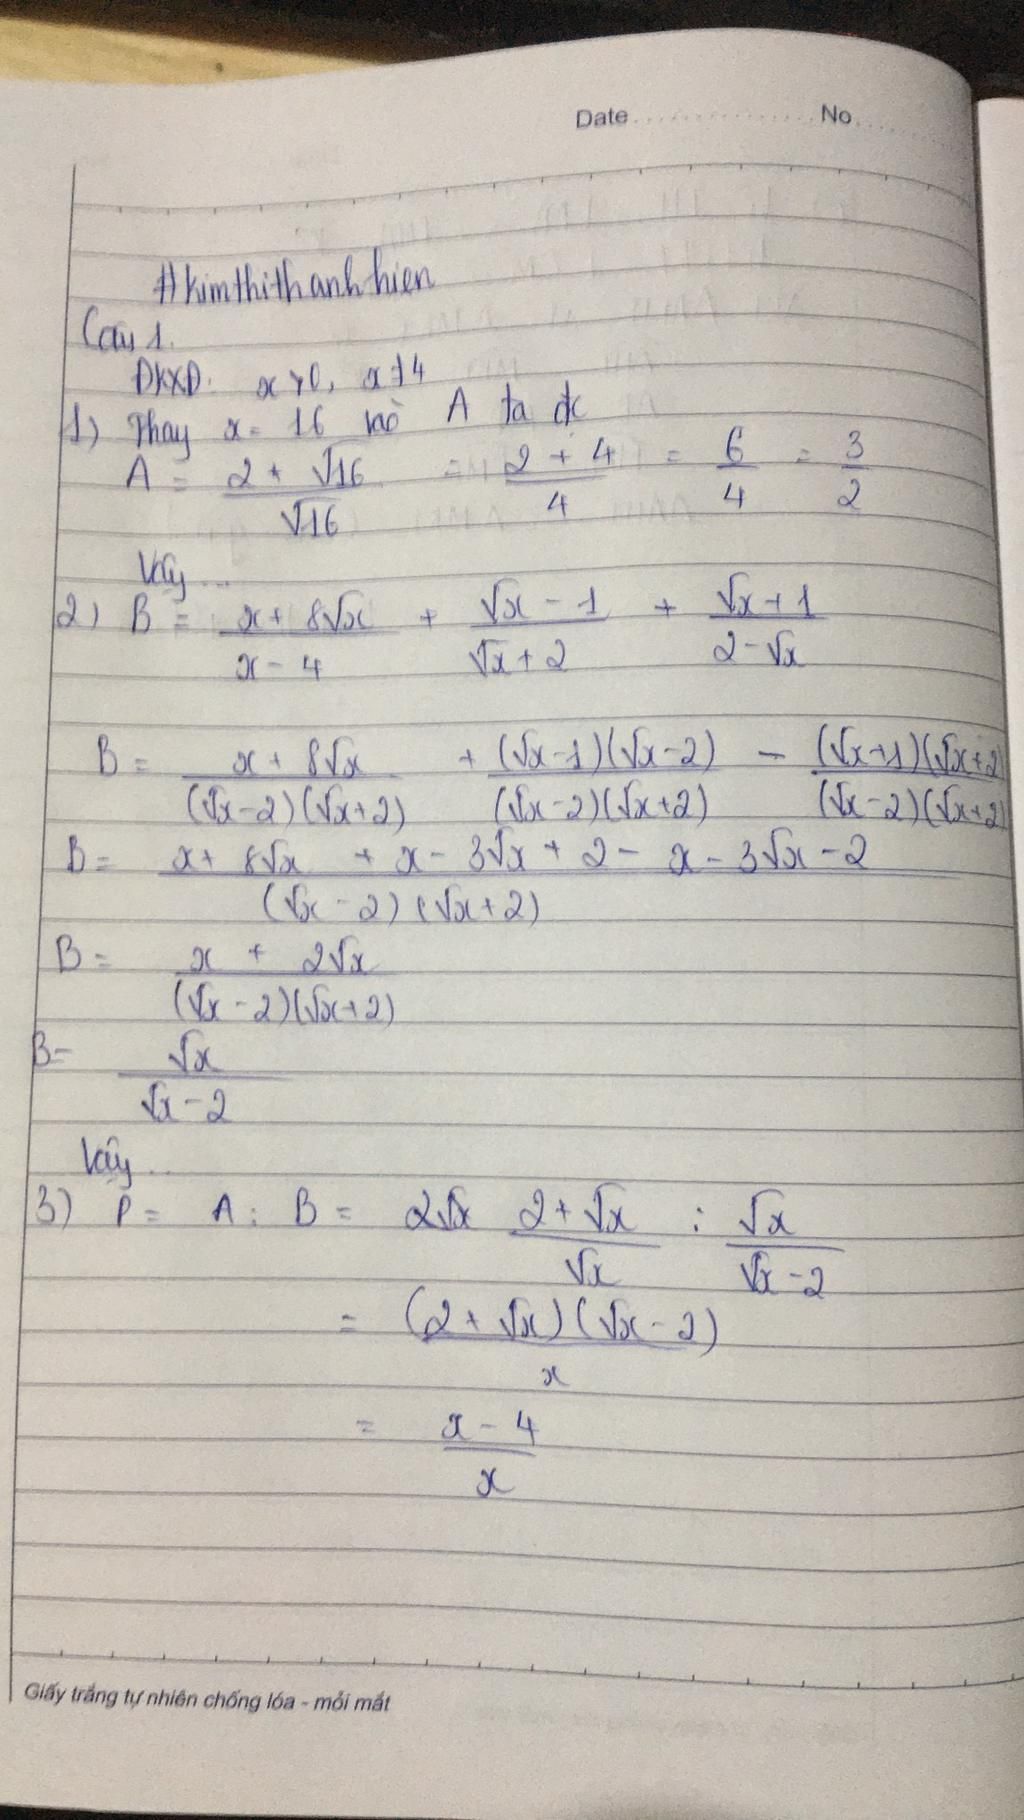 Date ............ No ......
#kimthithanhhien
Câu 1.
ĐKXĐ: x > 0, x ≠ 4
1) Thay x = 16 vào A ta đc
A = (2 + √16)/√16 = (2 + 4)/4 = 6/4 = 3/2
Vậy ...
2) B = (x + 8√x)/(x - 4) + (√x - 1)/(√x + 2) + (√x + 1)/(2 - √x)
B = (x + 8√x)/((√x - 2)(√x + 2)) + ((√x - 1)(√x - 2))/((√x - 2)(√x + 2)) - ((√x + 1)(√x + 2))/((√x - 2)(√x + 2))
B = (x + 8√x + x - 3√x + 2 - x - 3√x - 2)/((√x - 2)(√x + 2))
B = (x + 2√x)/((√x - 2)(√x + 2))
B = √x/(√x - 2)
Vậy ...
3) P = A : B = 2√x (2 + √x)/√x : √x/(√x - 2)
= ((2 + √x)(√x - 2))/x
= (x - 4)/x
Giấy trắng tự nhiên chống lóa - mỏi mắt